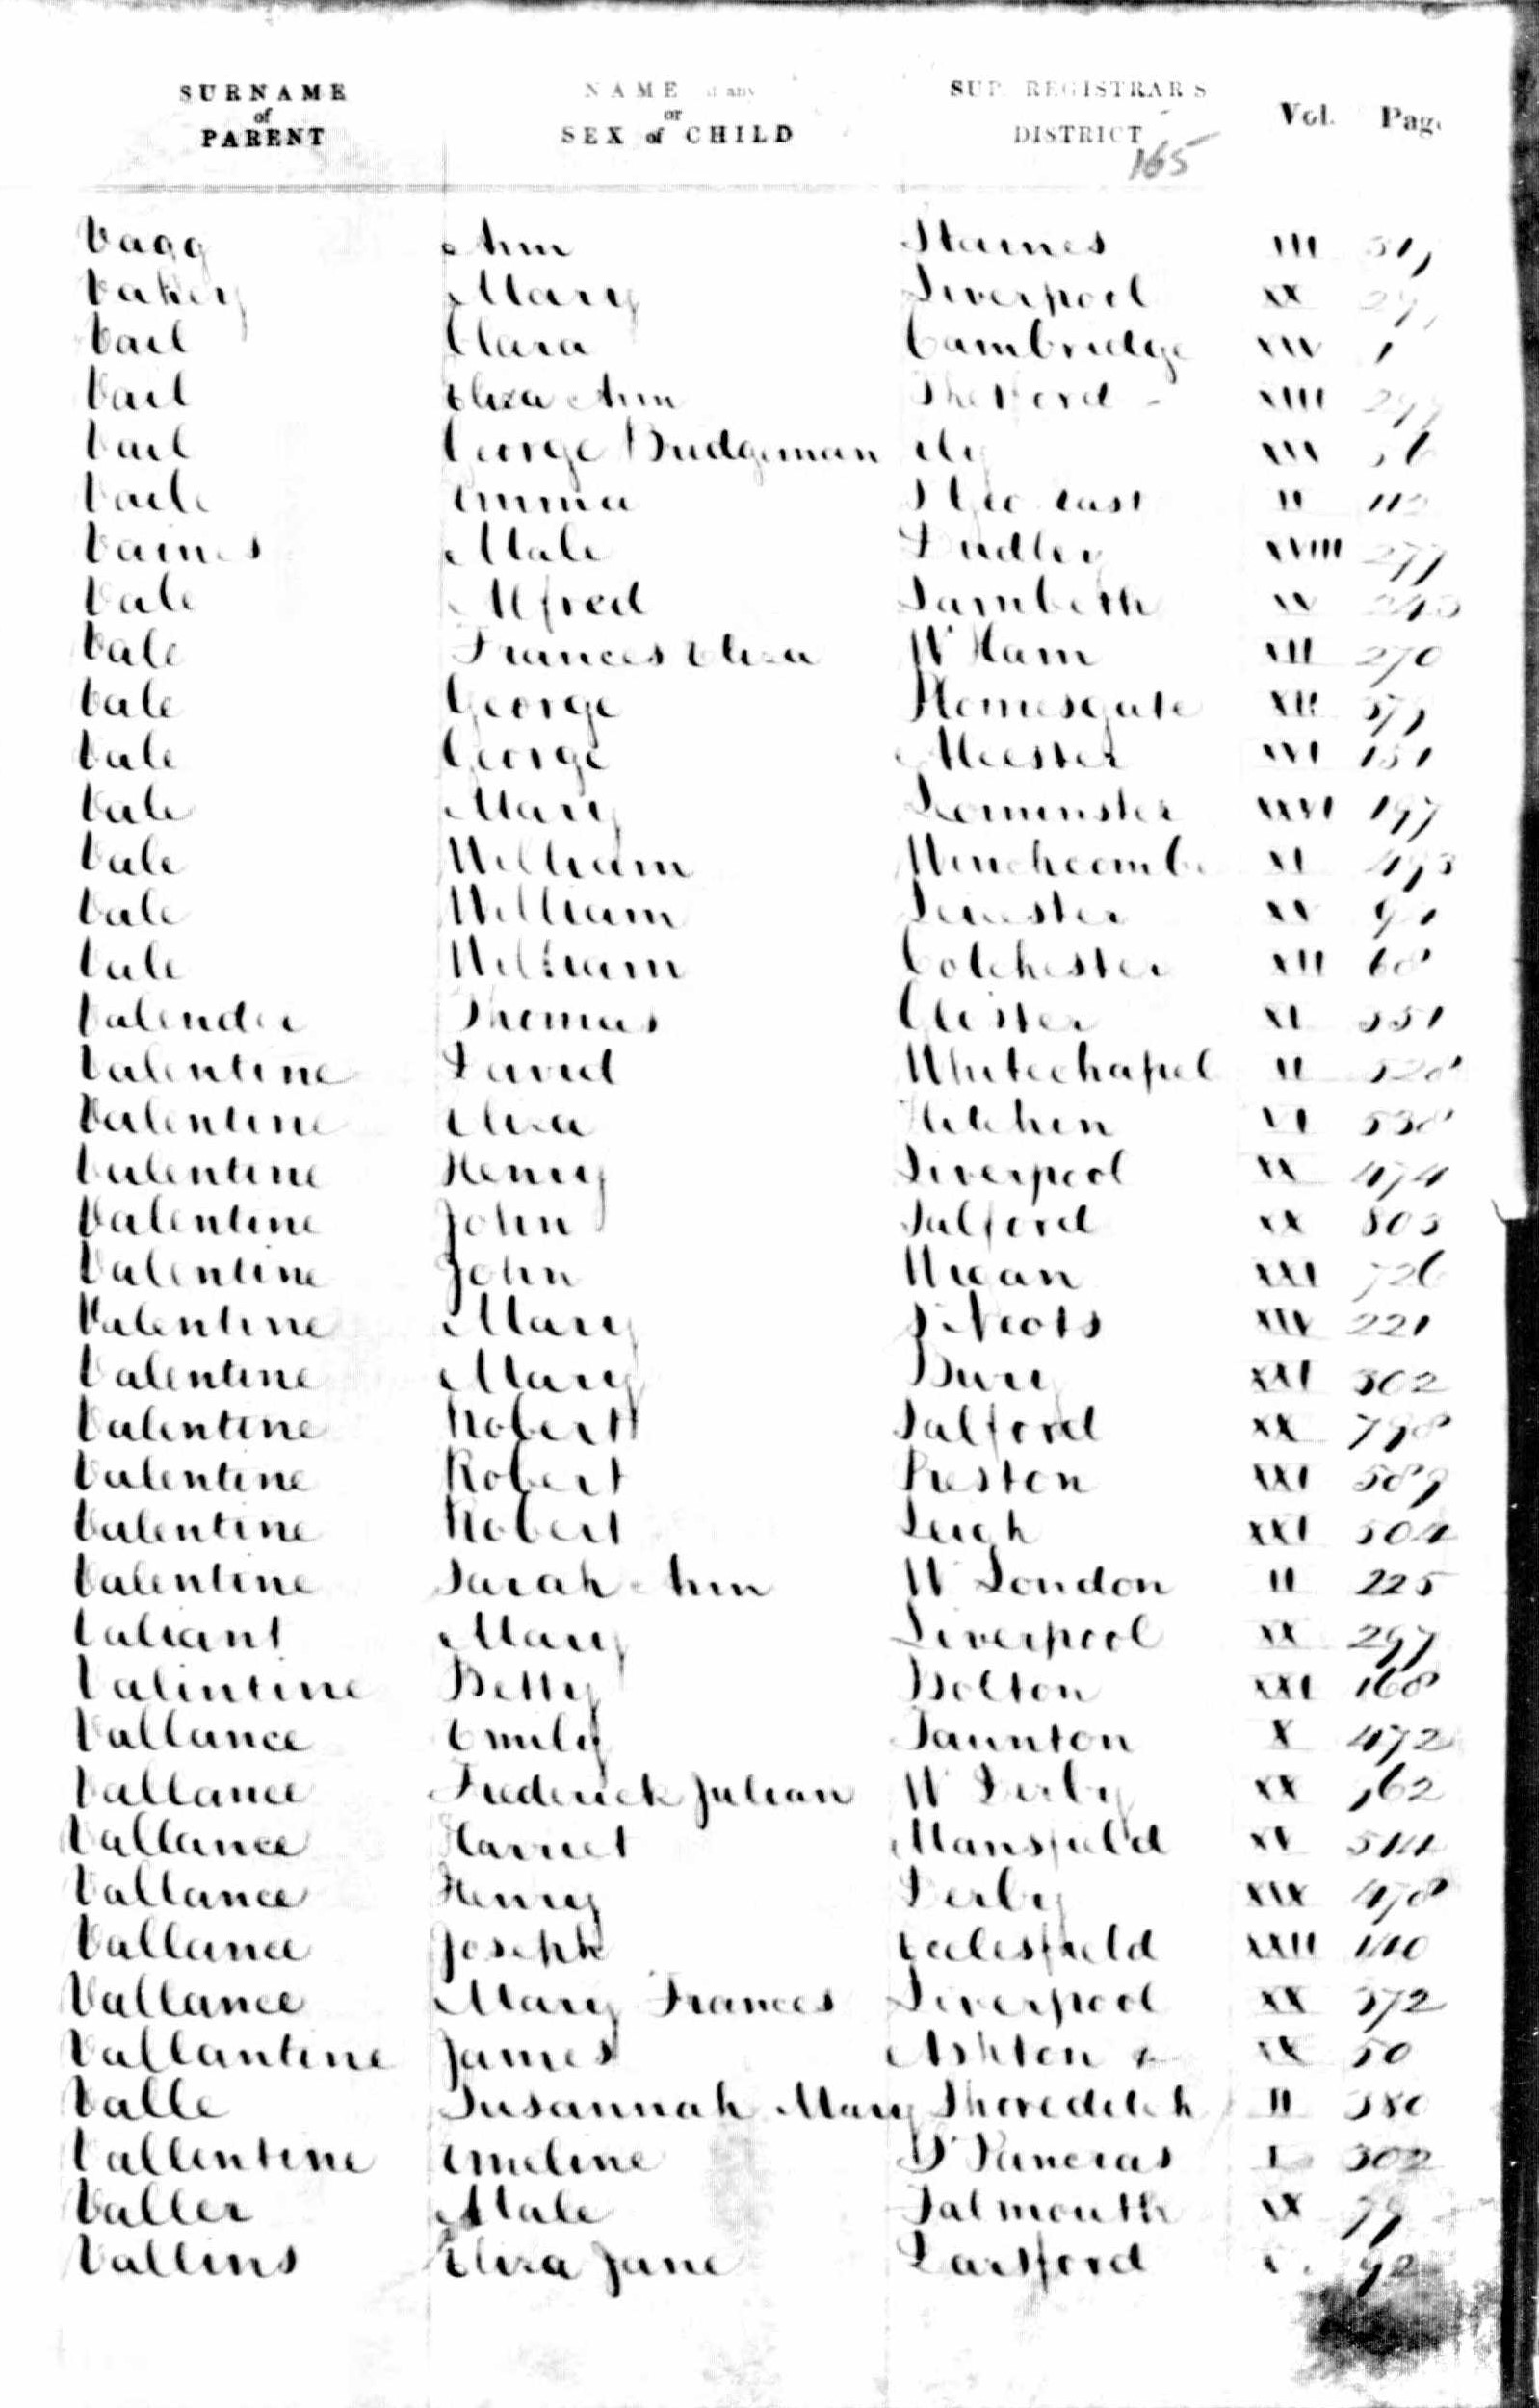 SURNAME of PARENT NAME if any or SEX of CHILD SUP. REGISTRARS DISTRICT Vol. Page
165
Vagg Ann Staines III
Vakey Mary Liverpool XX
Vail Clara Cambridge XIV 1
Vail Eliza Ann Thetford XIII
Vail George Bridgeman Ely XIV
Vaile Emma S Geo East II
Vaines Male Dudley XVIII 277
Vale Alfred Lambeth
Vale Frances Eliza W Ham XII 270
Vale George XII
Vale George Alcester XVI 151
Vale Mary Leominster XXVI 197
Vale William Winchcombe XI 493
Vale William Leicester XV
Vale William Colchester XII 68
Valender Thomas Glo'ster XI 351
Valentine David Whitechapel II 528
Valentine Eliza Hitchin VI 538
Valentine Henry Liverpool XX 474
Valentine John Salford XX 803
Valentine John Wigan XXI 726
Valentine Mary S Neots XIV 221
Valentine Mary Bury XXI 302
Valentine Robert Salford XX 798
Valentine Robert Preston XXI 589
Valentine Robert Leigh XXI 504
Valentine Sarah Ann W London II 225
Valiant Mary Liverpool XX 297
Valintine Betty Bolton XXI 168
Vallance Emily Taunton X 472
Vallance Frederick Julian W Derby XX
Vallance Harriet Mansfield XV 514
Vallance Henry Derby XIX 478
Vallance Joseph Ecclesfield XXII 140
Vallance Mary Frances Liverpool XX 372
Vallantine James Ashton & XX 50
Valle Susannah Mary Shoreditch II 380
Vallentine Emeline S Pancras I 302
Valler Male Falmouth IX 79
Vallins Eliza Jane Dartford 92